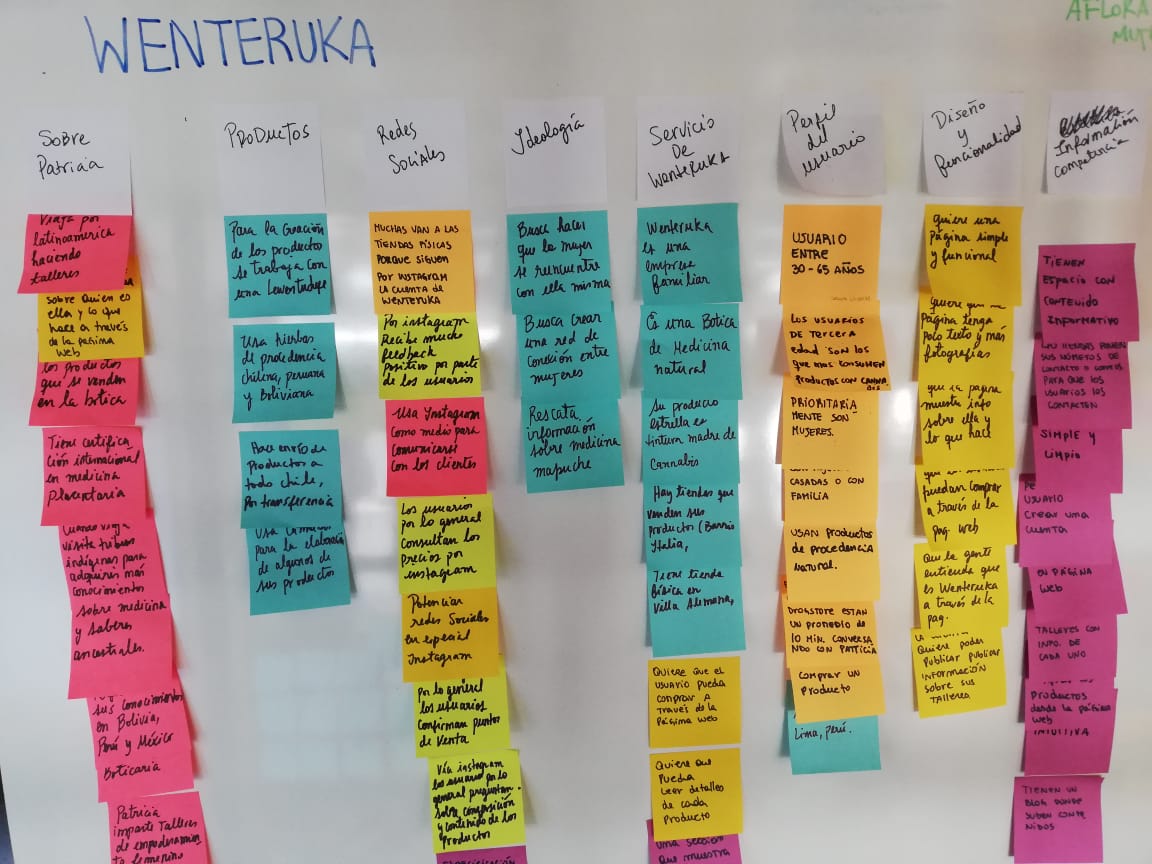 WENTERUKA
AFLORA
Sobre
Patricia
Viaja por
latinoamerica
haciendo
talleres
Sobre quien es
ella y lo que
hace a través
de la página
Web
los productos
que se venden
en la botica
Tiene certifica
ción internacional
en medicina
Placentaria
Cuando viaja
visita tribus
indígenas para
adquirir más
conocimientos
sobre medicina
y saberes
ancestrales.
sus conocimientos
en Bolivia,
Perú y México
Boticaria
Patricia
imparte Talleres
de empoderamien
to femenino
PRODUCTOS
Para la Creación
de los productos
se trabaja con
una
Usa hierbas
de procedencia
chilena, peruana
y Boliviana
Hace envío de
Productos a
todo chile,
Por transferencia
para la elaboración
de algunos de
sus productos
Redes
Sociales
MUCHAS VAN A LAS
TIENDAS FÍSICAS
PORQUE SIGUEN
POR INSTAGRAM
LA CUENTA DE
WENTERUKA
Por instagram
Recibe mucho
feedback
positivo por parte
de los usuarios
Usa Instagram
como medio para
comunicarse
con los clientes
Los usuarios
por lo general
consultan los
precios por
instagram
Potenciar
redes Sociales
en especial
Instagram
Por lo general
los usuarios
confirman puntos
de Venta
Vía instagram
los usuario por lo
general preguntan
sobre composición
y contenido de los
Productos
Ideología
Busca hacer
que la mujer
se reencuentre
con ella misma
Busca crear
una red de
conexión entre
mujeres
Rescata
información
sobre medicina
mapuche
Servicio
De
Wenteruka
Wenteruka
es una
empresa
familiar
Es una Botica
de Medicina
natural
Su producto
estrella es
tintura madre de
Cannabis
Hay tiendas que
venden sus
Productos (Barrio
Italia,
Tiene tienda
física en
Villa Alemana,
Quiere que el
usuario pueda
comprar a
través de la
Página web
Quiere que
pueda
leer detalles
de cada
Producto
una sección
que muestra
Perfil
del
usuario
USUARIO
ENTRE
30 - 65 AÑOS
LOS USUARIOS
DE TERCERA
EDAD SON LOS
QUE MAS CONSUMEN
PRODUCTOS CON CANNA
BIS
PRIORITARIA
MENTE SON
MUJERES.
CASADAS O CON
FAMILIA
USAN PRODUCTOS
DE PROCEDENCIA
NATURAL.
DROGSTORE ESTAN
UN PROMEDIO DE
10 MIN. CONVERSA
NDO CON PATRICIA
COMPRAR UN
PRODUCTO
Lima, Perú.
Diseño
y
funcionalidad
quiere una
Página simple
y funcional
quiere que
Página tenga
Poco texto y más
fotografías
que la pagina
muestre info
sobre ella y
lo que hace
puedan comprar
a través de la
pag. web
Que la gente
entienda que
es Wenteruka
a través de la
pag.
Quiere poder
Publicar publicar
INFORMACIÓN
SOBRE SUS
TALLERES
Información
competencia
TIENEN
ESPACIO CON
CONTENIDO
INFORMATIVO
LAS TIENDAS PONEN
SUS NÚMEROS DE
CONTACTO O CORREO
PARA QUE LOS
USUARIOS LOS
CONTACTEN
SIMPLE Y
LIMPIO
USUARIO
Crear una
cuenta
EN PÁGINA
WEB
TALLERES CON
INFO. DE
CADA UNO
PRODUCTOS
desde la página
WEB
INTUITIVA
TIENEN UN
BLOG DONDE
SUBEN CONTE
NIDOS